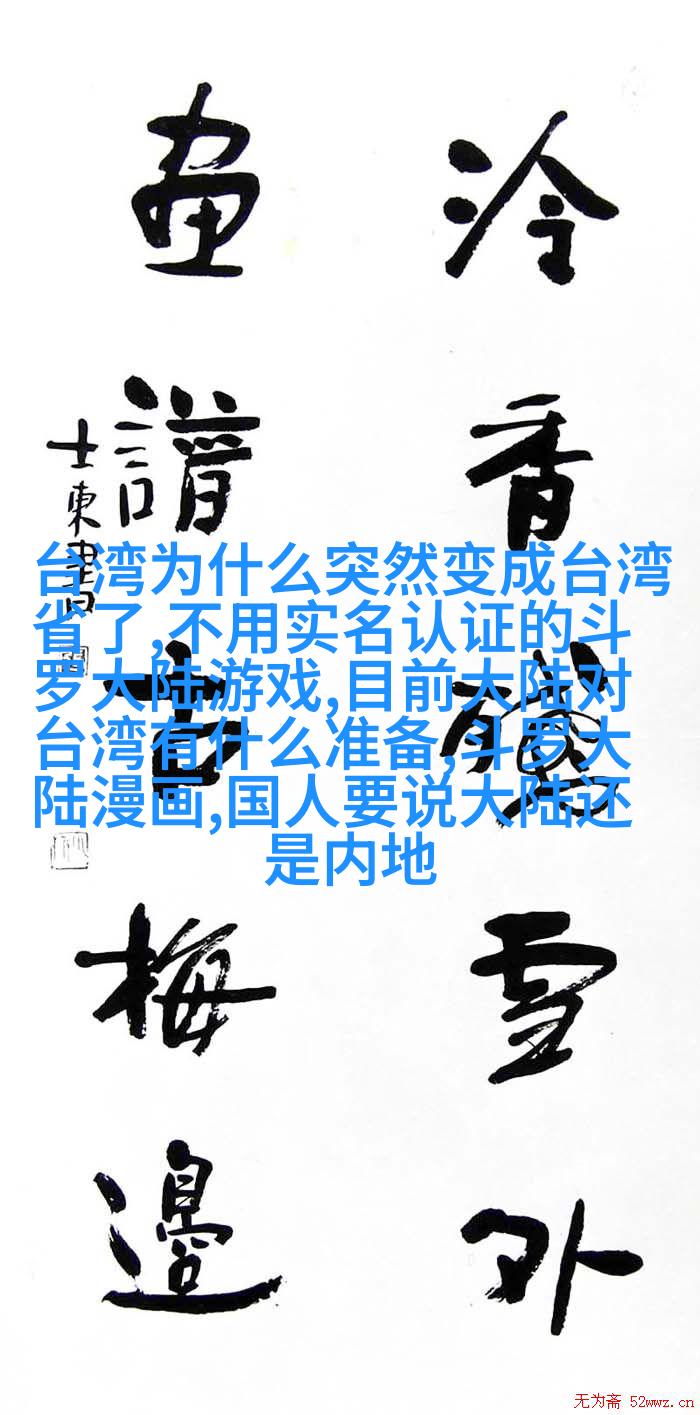 冷香殘雪外
畫譜古梅邊
士東書
台湾为什么突然变成台湾
省了,不用实名认证的斗
罗大陆游戏,目前大陆对
台湾有什么准备,斗罗大
陆漫画,国人要说大陆还
是内地
无为斋 52wwz.cn